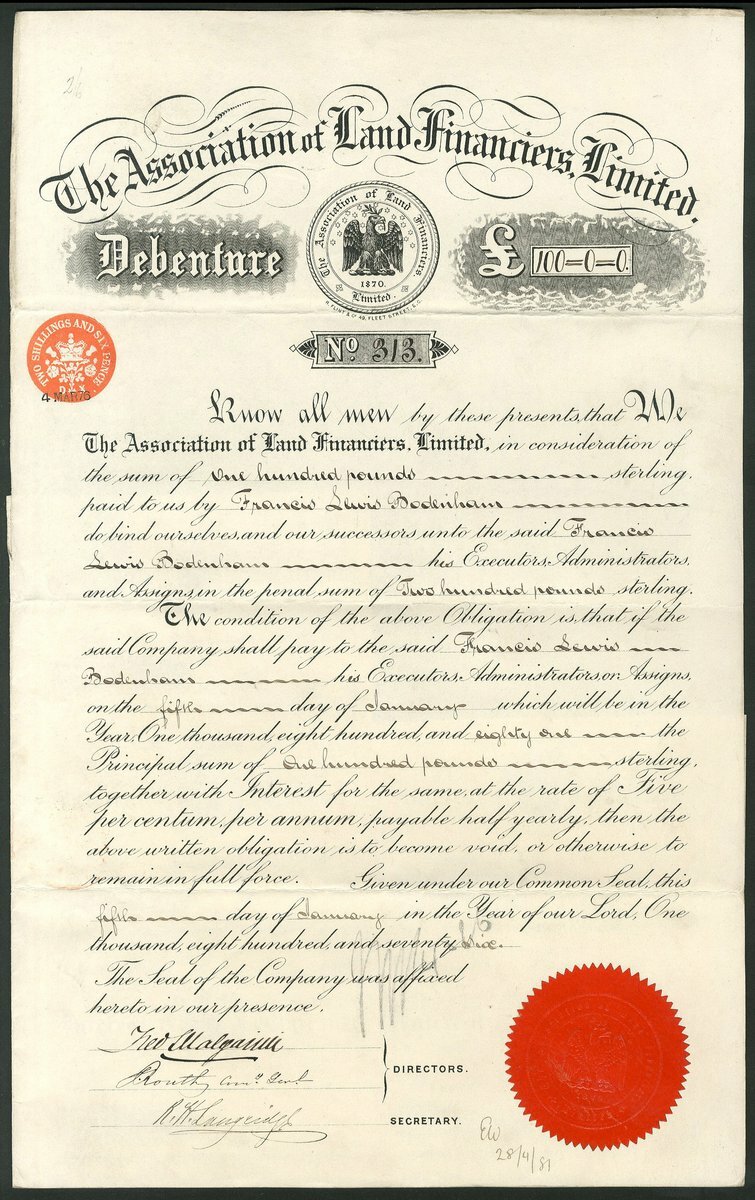 2/6
The Association of Land Financiers, Limited.
Debenture
The Association of Land Financiers
1870.
Limited.
£ 100=0=0.
R. FLINT & Co 49, FLEET STREET, E.C.
No. 313.
TWO SHILLINGS AND SIX PENCE
4 MAR 76
Know all men by these presents, that We
The Association of Land Financiers, Limited, in consideration of
the sum of One hundred pounds sterling,
paid to us by Francis Lewis Bodenham
do bind ourselves, and our successors, unto the said Francis
Lewis Bodenham his Executors, Administrators,
and Assigns, in the penal sum of Two hundred pounds sterling.
The condition of the above Obligation is, that if the
said Company shall pay to the said Francis Lewis
Bodenham his Executors, Administrators, or Assigns,
on the fifth day of January which will be in the
Year, One thousand, eight hundred, and eighty one the
Principal sum of One hundred pounds sterling,
together with Interest for the same, at the rate of Five
per centum, per annum, payable half yearly, then the
above written obligation is to become void, or otherwise to
remain in full force. Given under our Common Seal, this
fifth day of January in the Year of our Lord, One
thousand, eight hundred, and seventy six.
The Seal of the Company was affixed
hereto in our presence.
DIRECTORS.
SECRETARY.
28/4/81